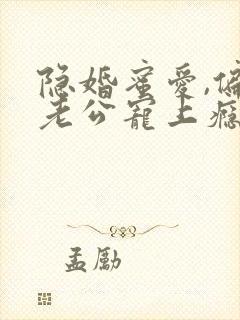 隐婚蜜爱,偏
老公宠上瘾
孟励